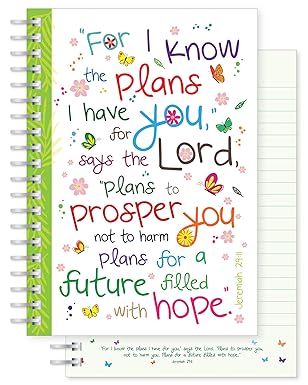 "For I know
the plans
I have
for you,"
says the
Lord,
"plans to
prosper you
not to harm
plans for a
future filled
with hope."
Jeremiah 29:11
"For I know the plans I have for you," says the Lord, "Plans to prosper you,
not to harm you. Plans for a future filled with hope."
Jeremiah 29:11